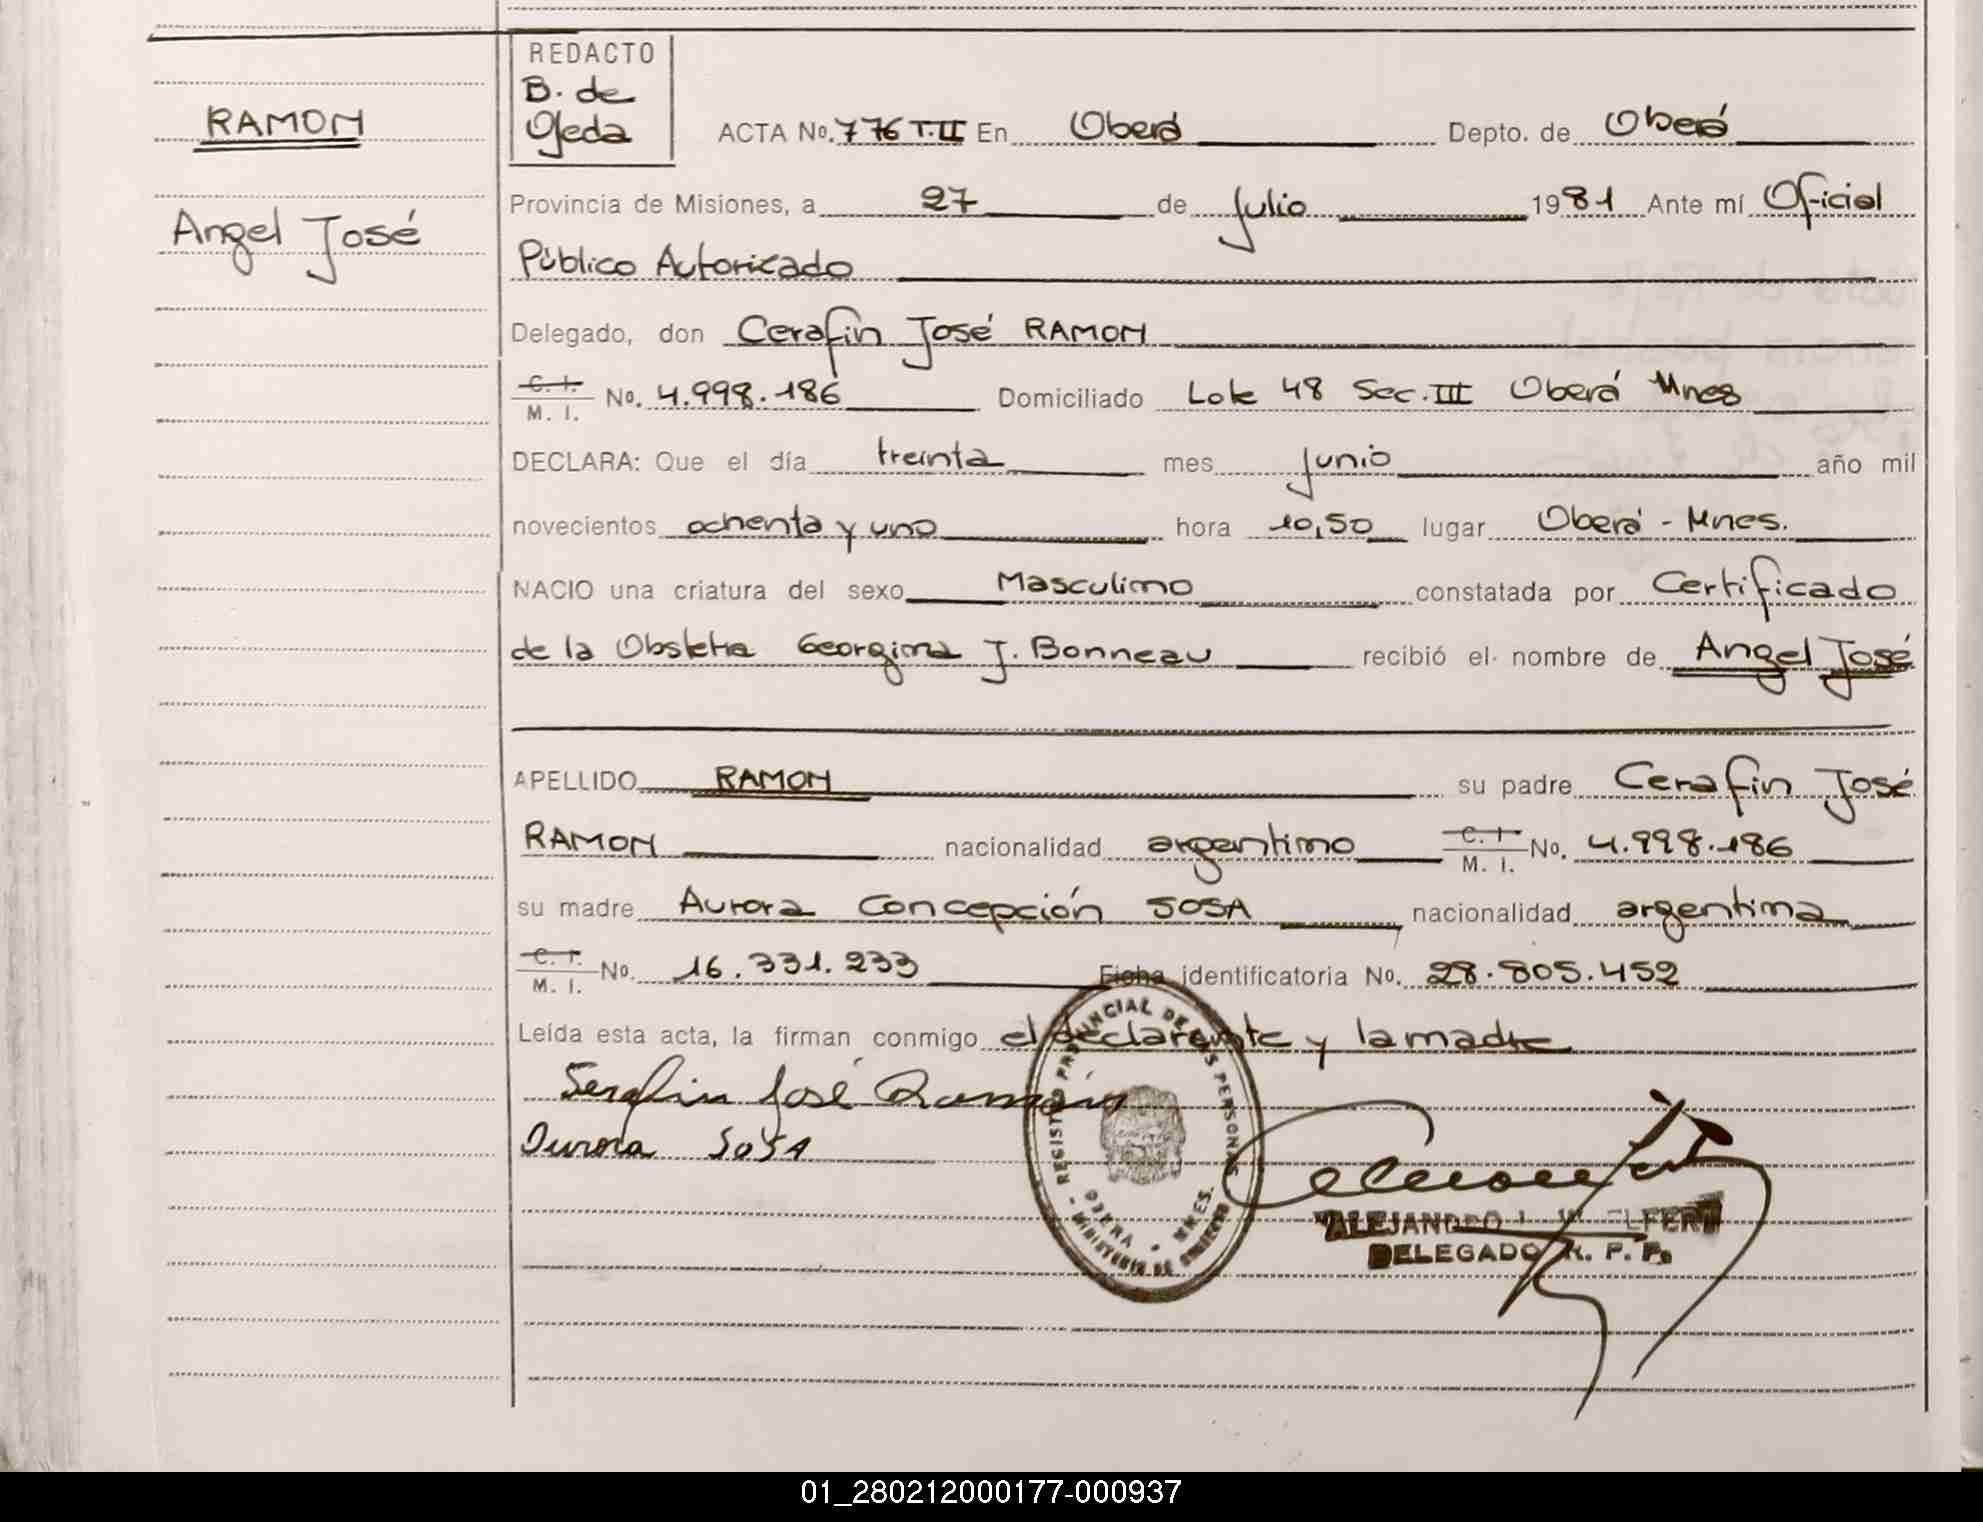 REDACTO
B. de
Ojeda
RAMON
Angel José
ACTA No. 776 T.II En Oberá Depto. de Oberá
Provincia de Misiones, a 27 de julio 1981 Ante mí Oficial
Público Autorizado
Delegado, don Cerafin José RAMON
C. I. M. I. No. 4.998.186 Domiciliado Lote 48 Sec. III Oberá Mnes
DECLARA: Que el día treinta mes junio año mil
novecientos ochenta y uno hora 10,50 lugar Oberá - Mnes.
NACIO una criatura del sexo Masculino constatada por Certificado
de la Obstetra Georgina J. Bonneau recibió el nombre de Angel José
APELLIDO RAMON su padre Cerafin José
RAMON nacionalidad argentino C. I. M. I. No. 4.998.186
su madre Aurora Concepción SOSA nacionalidad argentina
C. I. M. I. No. 16.331.233 Ficha identificatoria No. 28.805.452
Leída esta acta, la firman conmigo el declarante y la madre
Serafin José Ramón
Aurora SOSA
REGISTRO PROVINCIAL DE LAS PERSONAS
OBERA - MNES.
MINISTERIO DE GOBIERNO
ALEJANDRO
DELEGADO R. P. P.
01_280212000177-000937